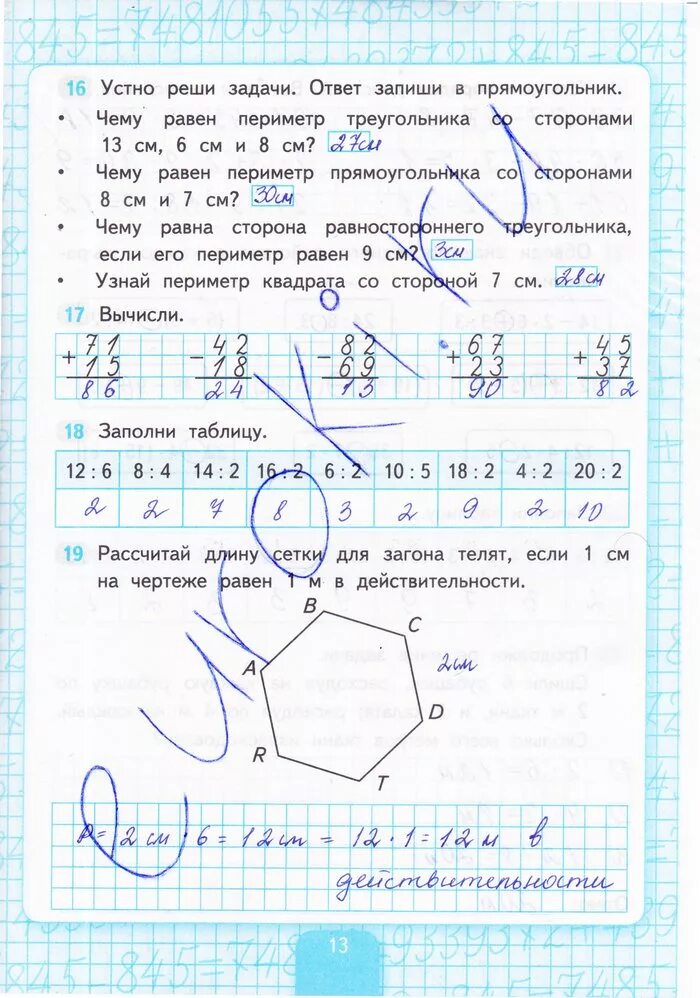 16 Устно реши задачи. Ответ запиши в прямоугольник.
• Чему равен периметр треугольника со сторонами
13 см, 6 см и 8 см? 27см
• Чему равен периметр прямоугольника со сторонами
8 см и 7 см? 30см
• Чему равна сторона равностороннего треугольника,
если его периметр равен 9 см? 3см
• Узнай периметр квадрата со стороной 7 см. 28см
17 Вычисли.
+ 71 − 42 − 82 + 67 + 45
15 18 69 23 37
86 24 13 90 82
18 Заполни таблицу.
12 : 6 8 : 4 14 : 2 16 : 2 6 : 2 10 : 5 18 : 2 4 : 2 20 : 2
2 2 7 8 3 2 9 2 10
19 Рассчитай длину сетки для загона телят, если 1 см
на чертеже равен 1 м в действительности.
B
C
A 2см
D
R
T
P = 2 см · 6 = 12 см = 12 · 1 = 12 м в
действительности
13